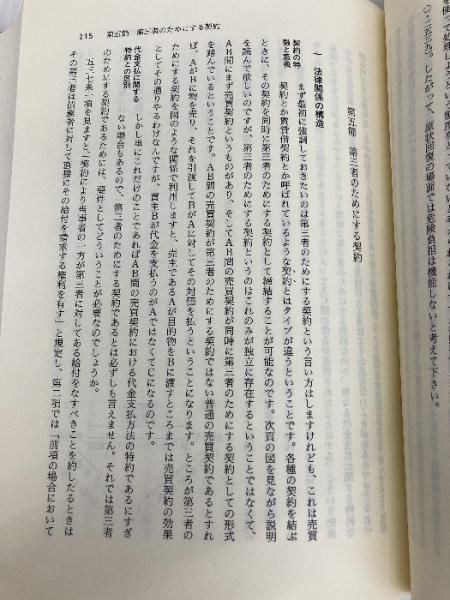 便で処理しようという
〇・二五九)。したがって、原状回復の場面では危険負担は機能しないと考えて下さい。
115 第五節 第三者のためにする契約
第五節 第三者のためにする契約
一 法律関係の構造
契約の特
徴と意義
まず最初に強調しておきたいのは第三者のためにする契約という言い方はしますけれども、これは売買
契約とか賃貸借契約とか呼ばれているような契約とはタイプが違うということです。各種の契約を結ぶ
ときに、その契約を同時に第三者のためにする契約として締結することが可能なのです。次頁の図を見ながら説明
を読んで欲しいのですが、第三者のためにする契約というのはこれのみが独立に存在するということではなくて、
AB間にまず売買契約というものがあり、そしてAB間の売買契約が同時に第三者のためにする契約としての形式
を踏んでいるということです。AB間の売買契約が第三者のためにする契約ではない普通の売買契約であるとすれ
ば、AがBに物を売り、それを引渡してBがAに対してその対価を払うということになります。ところが第三者の
ためにする契約を図のような関係で利用しますと、売主であるAが目的物をBに渡すところまでは売買契約の効果
としてその通りやるわけなんですが、買主Bが代金を支払うのがAではなくてCになるのです。
代金支払に関する
特約との区別
しかし単にこれだけのことであればAB間の売買契約における代金支払方法の特約であるにすぎ
ない場合もあるので、第三者のためにする契約であるとは必ずしも言えません。それでは第三者
のためにする契約であるためには、要件としてどういうことが必要なのでしょうか。
五三七条一項を見ますと、「契約により当事者の一方が第三者に対してある給付をなすべきことを約したるときは
その第三者は債務者に対して直接にその給付を請求する権利を有す」と規定し、第二項では「前項の場合において